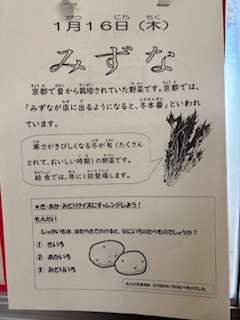 1月16日(木)
みずな
京都で昔から栽培されていた野菜です。京都では、
「みずなが店に出るようになると、冬本番」といわれ
ています。
寒さがきびしくなる冬が旬(たくさん
とれて、おいしい時期)の野菜です。
給食では、年に1回登場します。
★き・あか・みどりクイズにチャレンジしよう!
もんだい
じゃがいもは、はたらきでわけると、なにいろのたべものでしょうか?
① きいろ
② あかいろ
③ みどりいろ